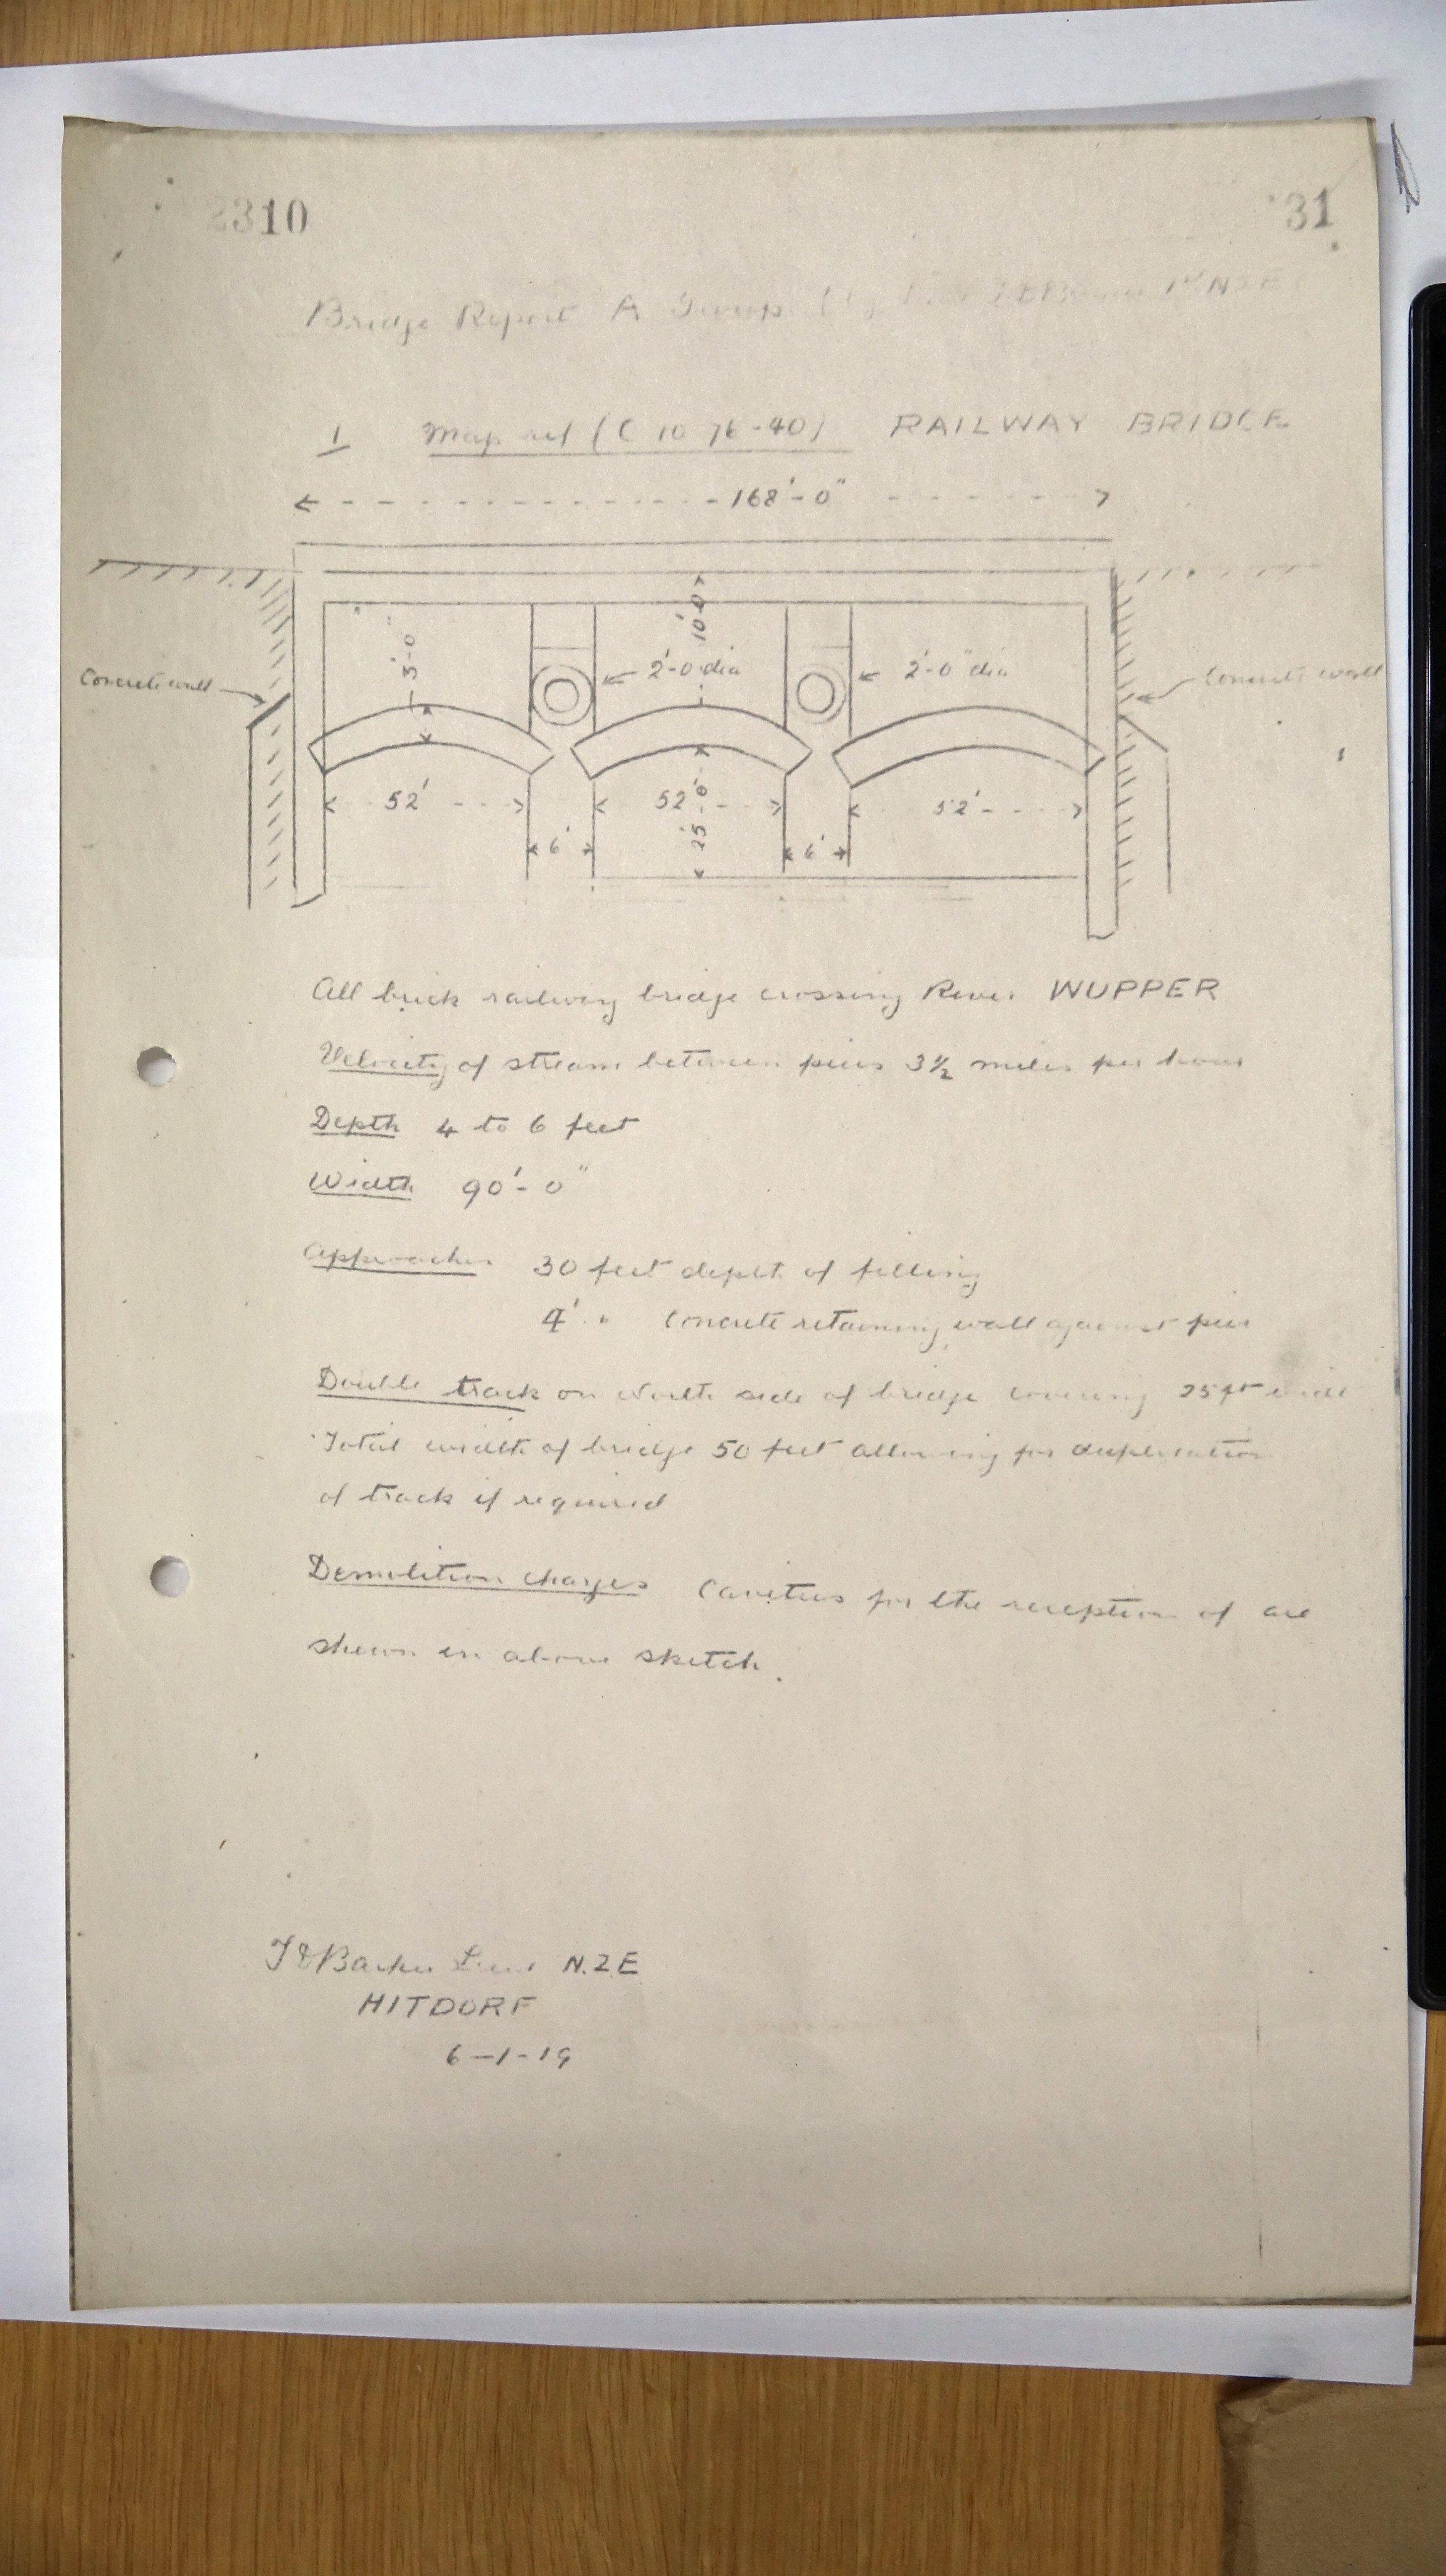 2310
31
Bridge Report A Group
1 Map ref (C 10 76-40) RAILWAY BRIDGE
168'-0"
10'-0"
3'-0"
2'-0" dia
2'-0" dia
Concrete wall
Concrete wall
52'
52'
52'
25'-0"
6'
6'
All brick railway bridge crossing River WUPPER
Velocity of stream between piers 3½ miles per hour
Depth 4 to 6 feet
Width 90'-0"
Approaches 30 feet depth of filling
4' " Concrete retaining wall against pier
Double track on North side of bridge covering 25 ft wide
Total width of bridge 50 feet allowing for duplication
of track if required
Demolition charges Cavities for the reception of are
shewn in above sketch.
Barker Lieut N.Z.E
HITDORF
6-1-19